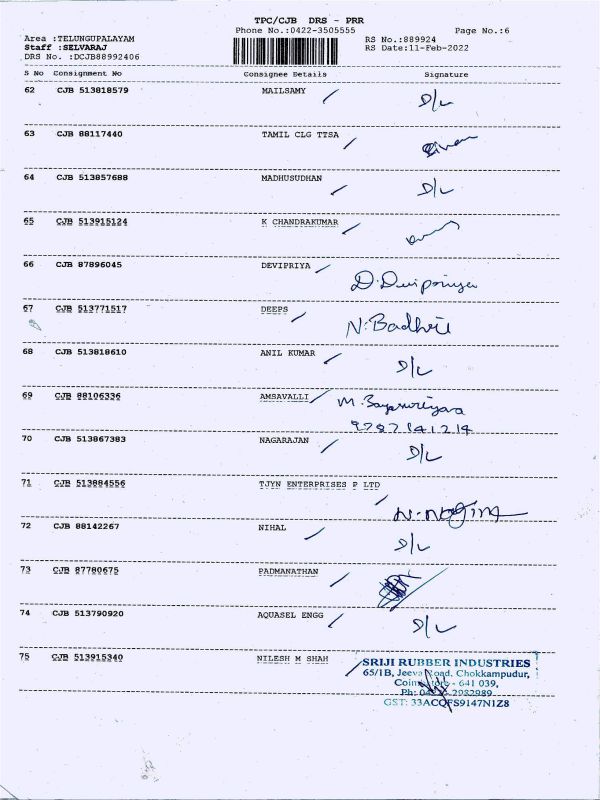 TPC/CJB DRS - PRR
Phone No.:0422-3505555 Page No.:6
Area :TELUNGUPALAYAM RS No.:889924
Staff :SELVARAJ RS Date:11-Feb-2022
DRS No. :DCJB88992406
S No Consignment No Consignee Details Signature
62 CJB 513818579 MAILSAMY D/L
63 CJB 88117440 TAMIL CLG TTSA
64 CJB 513857688 MADHUSUDHAN D/L
65 CJB 513915124 K CHANDRAKUMAR
66 CJB 87896045 DEVIPRIYA
D. Devipriya
67 CJB 513771517 DEEPS
N. Badhri
68 CJB 513818610 ANIL KUMAR D/L
69 CJB 88106336 AMSAVALLI M.
9787141214
70 CJB 513867383 NAGARAJAN D/L
71 CJB 513884556 TJYN ENTERPRISES P LTD
72 CJB 88142267 NIHAL D/L
73 CJB 87780675 PADMANATHAN
74 CJB 513790920 AQUASEL ENGG D/L
75 CJB 513915340 NILESH M SHAH SRIJI RUBBER INDUSTRIES
65/1B, Jeeva Road, Chokkampudur,
Coimbatore - 641 039.
Ph: 0422 - 2982989
GST: 33ACQFS9147N1Z8